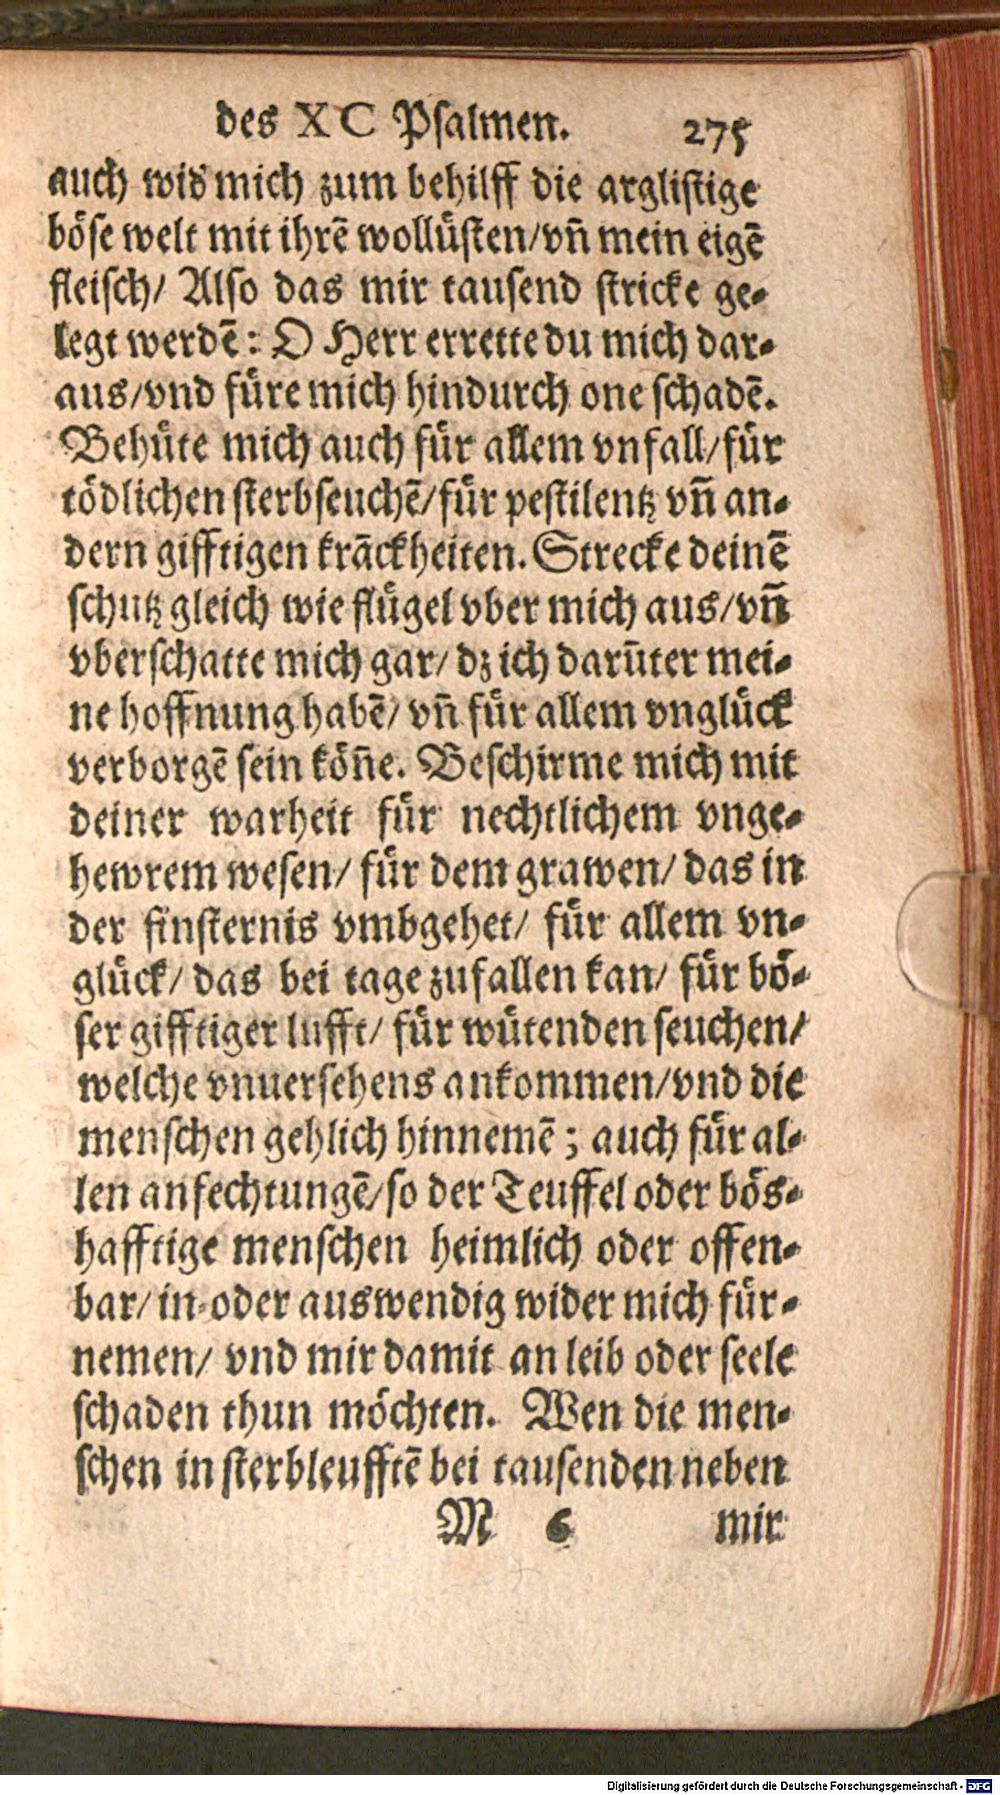 des XC Psalmen. 275
auch wid mich zum behilff die arglistige
böse welt mit ihrẽ wollüsten/vñ mein eigẽ
fleisch/ Also das mir tausend stricke ge-
legt werdẽ: O Herr errette du mich dar-
aus/vnd füre mich hindurch one schadẽ.
Behüte mich auch für allem vnfall/für
tödlichen sterbseuchẽ/für pestilentz vñ an-
dern gifftigen krãckheiten. Strecke deinẽ
schutz gleich wie flügel vber mich aus/vñ
vberschatte mich gar/ dz ich darũter mei-
ne hoffnung habẽ/ vñ für allem vnglück
verborgẽ sein köñe. Beschirme mich mit
deiner warheit für nechtlichem vnge-
hewrem wesen/ für dem grawen/ das in
der finsternis vmbgehet/ für allem vn-
glück/ das bei tage zufallen kan/ für bö-
ser gifftiger lufft/ für wütenden seuchen/
welche vnuersehens ankommen/vnd die
menschen gehlich hinnemẽ; auch für al-
len anfechtungẽ/so der Teuffel oder bös-
hafftige menschen heimlich oder offen-
bar/ in-oder auswendig wider mich für-
nemen/ vnd mir damit an leib oder seele
schaden thun möchten. Wen die men-
schen in sterbleufftẽ bei tausenden neben
M 6 mir
Digitalisierung gefördert durch die Deutsche Forschungsgemeinschaft - DFG